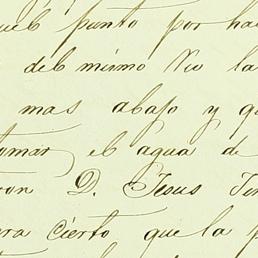 punto por
del mismo Rio la
mas abajo y
tomar el agua de
D. Jesus
cierto que la